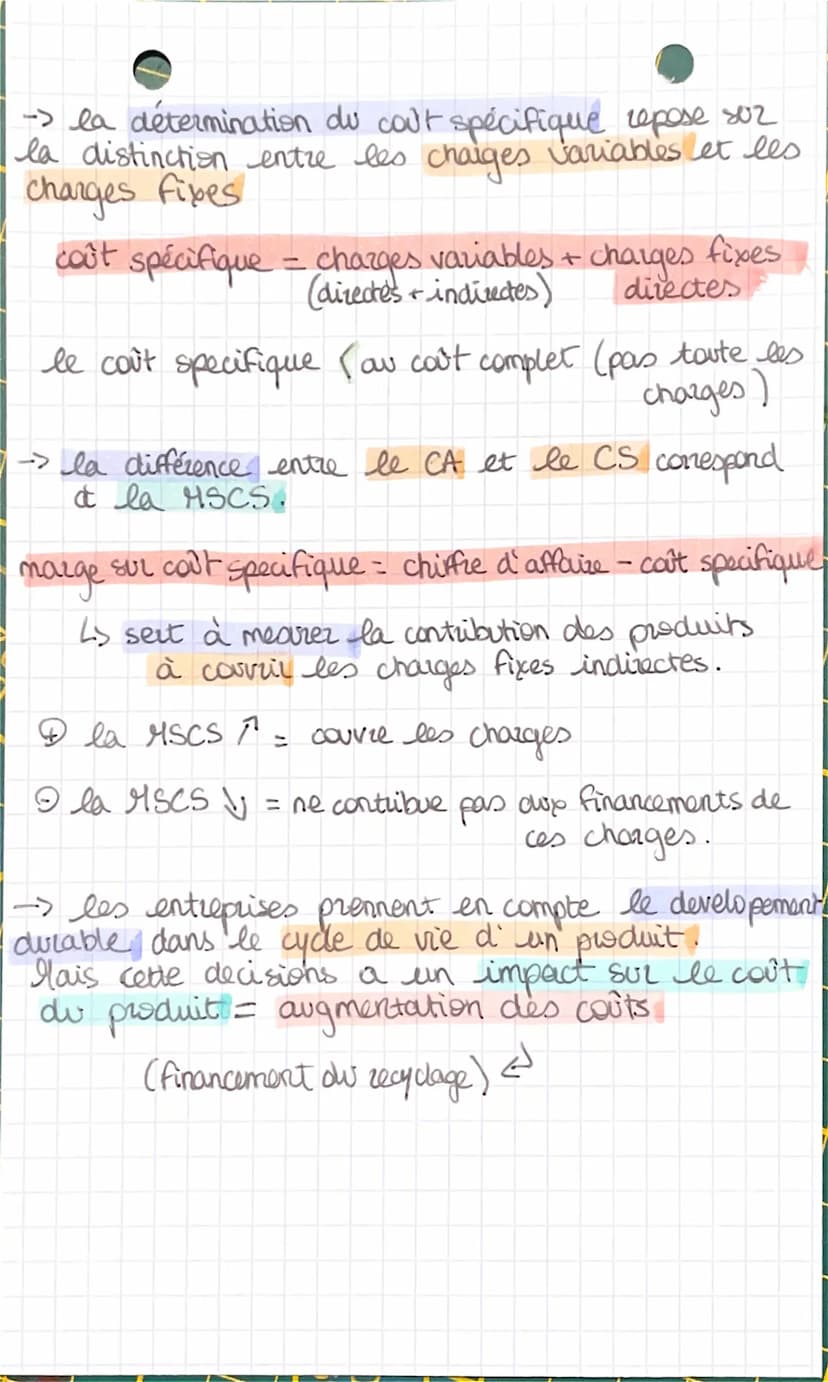 -> la détermination du coût spécifique repose sur
la distinction entre les charges variables et les
charges fixes
coût spécifique = charges variables + charges fixes
(directes + indirectes) directes
le coût specifique ( au coût complet (pas toute les
charges)
-> la différence entre le CA et le CS correspond
à la MSCS.
marge sur coût specifique = chiffre d'affaire - coût specifique
↳ sert à mesurer la contribution des produits
à couvrir les charges fixes indirectes.
⊕ la MSCS ↗ = couvre les charges
⊖ la MSCS ↘ = ne contribue pas aux financements de
ces charges.
-> les entreprises prennent en compte le developement
durable dans le cycle de vie d'un produit.
Mais cette decisions a un impact sur le coût
du produit = augmentation des coûts
(financement du recyclage) ↵